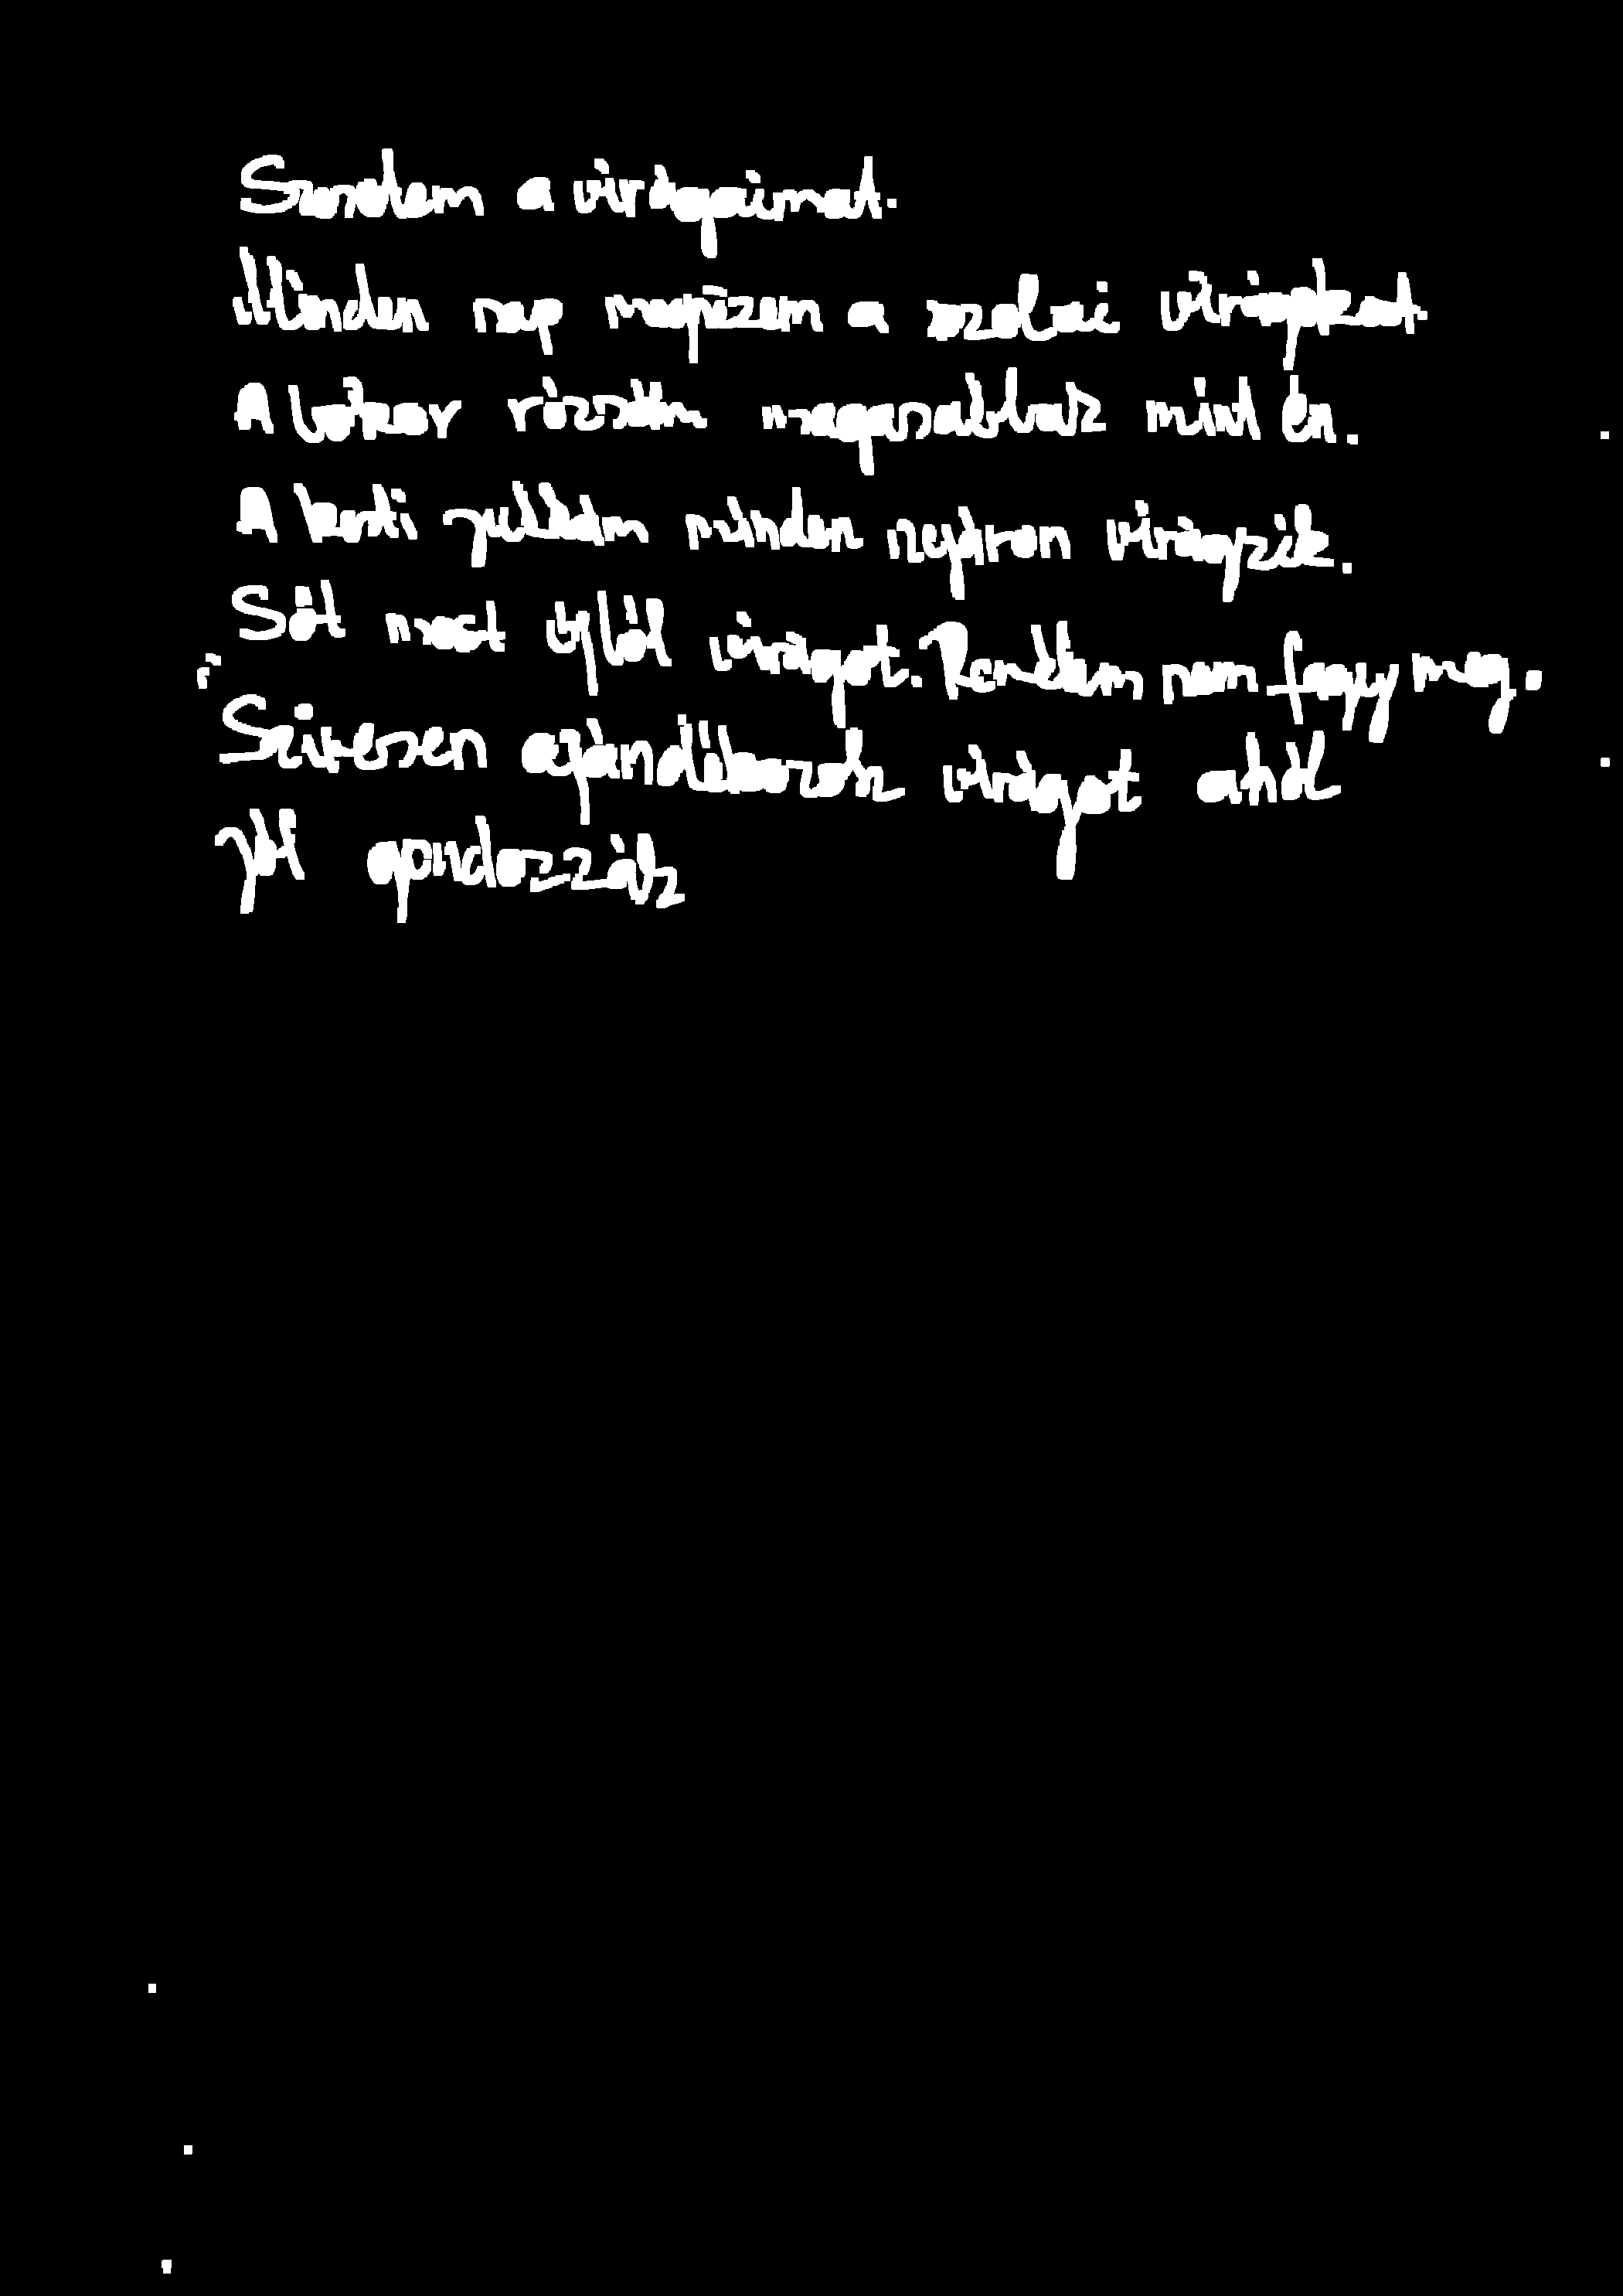 Szeretem a virágaimat.
Minden nap megnézem a szobai virágokat.
A bokor rózsám magasabbak mint én.
A kerti jukkám minden nyáron virágzik.
Sőt most újból virágot. Remélem nem fagy meg.
Szívesen ajándékozok virágot ahol
jól gondozzák